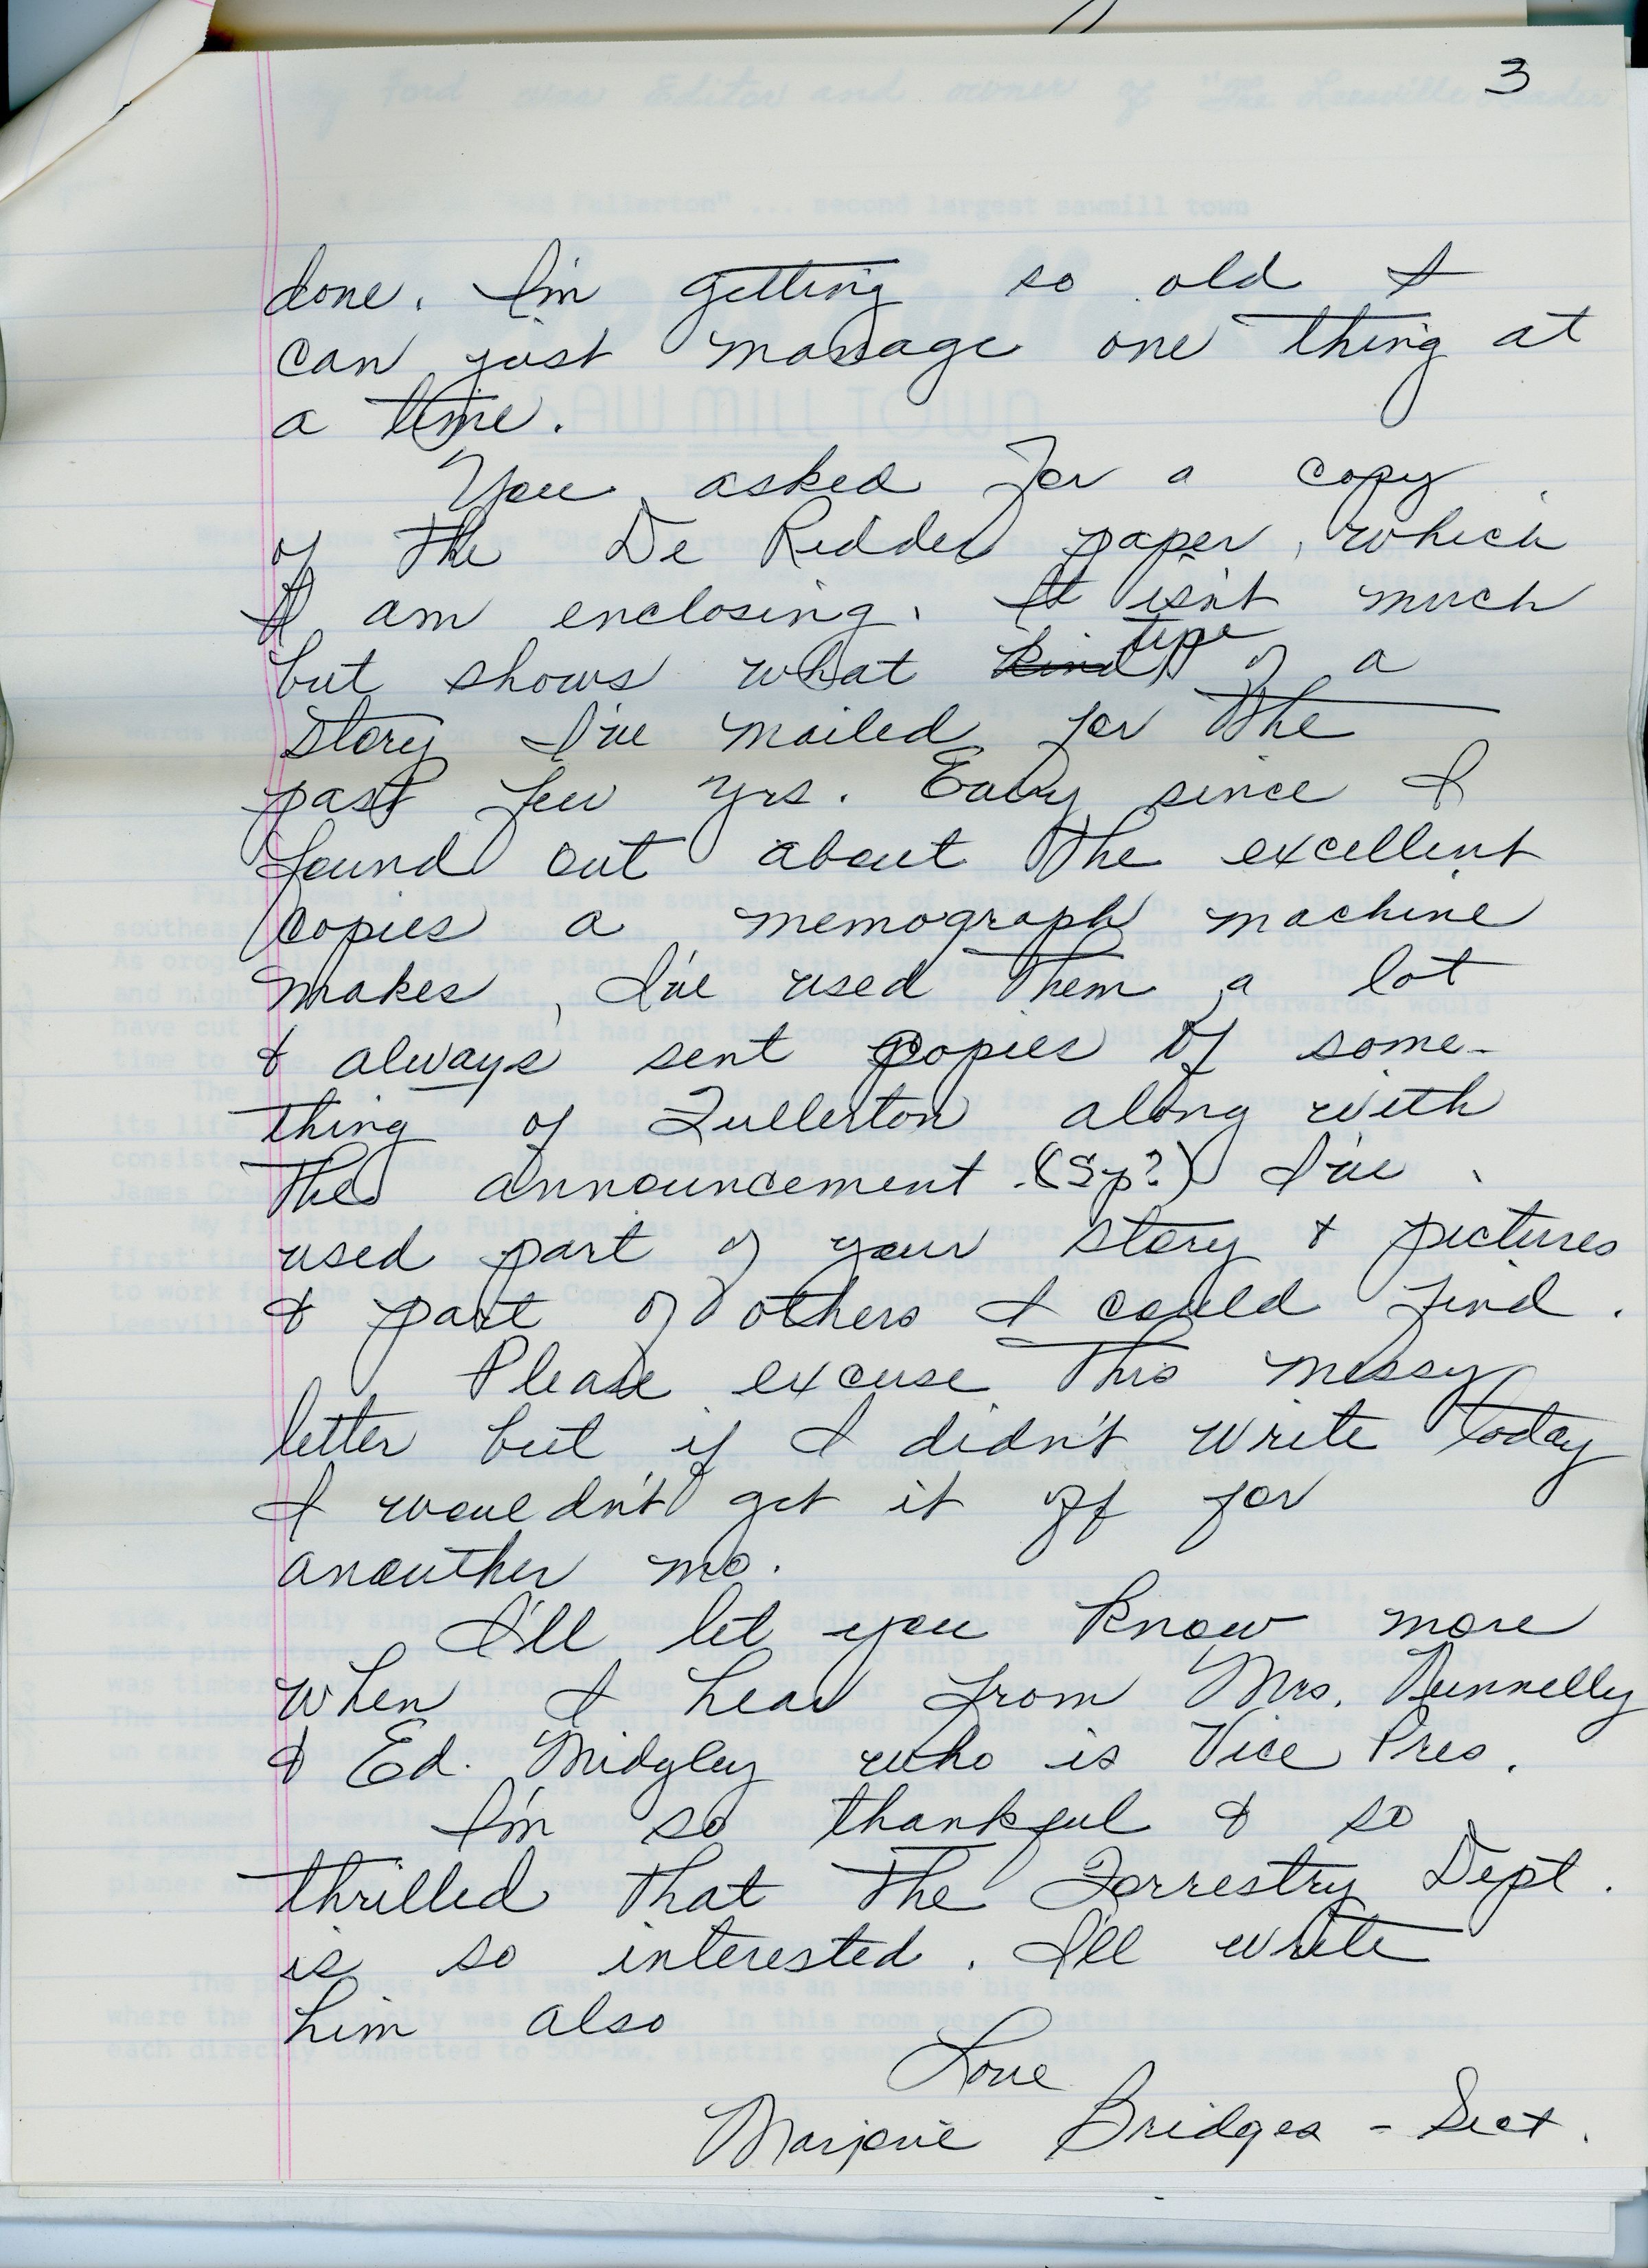 3
done. I'm getting so old I
can just manage one thing at
a time.
You asked for a copy
of the De Ridder paper, which
I am enclosing. It isn't much
but shows what kind type of a
story I've mailed for the
past few yrs. Every since I
found out about the excellent
copies a memograph machine
makes, I've used them a lot
& always sent copies of some-
thing of Fullerton along with
the announcement. (Sp?) I've
used part of your story & pictures
& part of others I could find.
Please excuse this messy
letter but if I didn't write today
I wouldn't get it off for
anouther mo.
I'll let you know more
when I hear from Mrs. Nunnelly
& Ed. Midgley who is Vice Pres.
I'm so thankful & so
thrilled that the Forrestry Dept.
is so interested. I'll write
him also
Love
Marjorie Bridges - Sect.